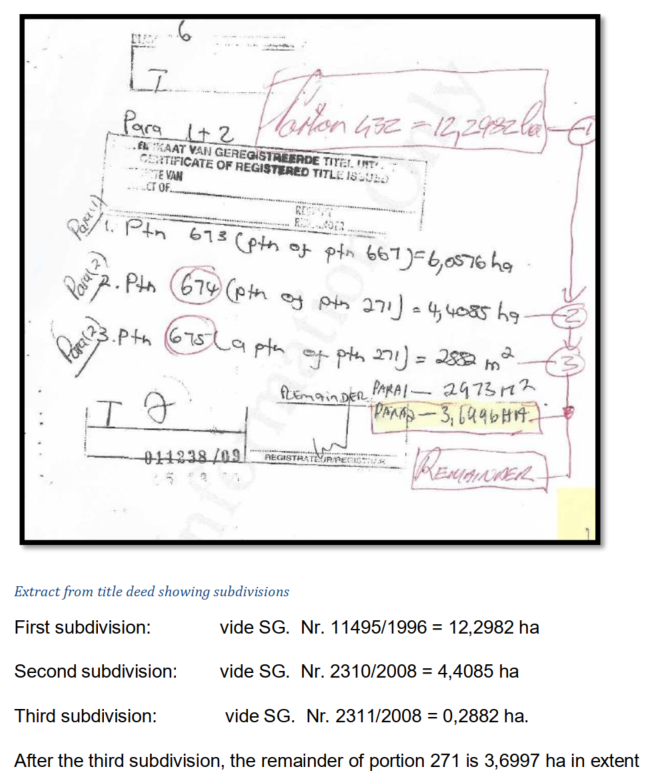 6
I
Portion 432 = 12,2982 ha
1
Para 1+2
CERTIFICAAT VAN GEREGISTREERDE TITEL
CERTIFICATE OF REGISTERED TITLE ISSUED
Para(1) 1. Ptn 673 (ptn of ptn 667) = 6,0576 ha
Para(2) 2. Ptn 674 (ptn of ptn 271) = 4,4085 ha
2
Para(2) 3. Ptn 675 (a ptn of ptn 271) = 2882 m²
3
REMAINDER PARA1 — 2973 M²
PARA2 — 3,6996 HA
T
011238/09
REGISTRATEUR/REGISTRAR
REMAINDER
Information Only
Extract from title deed showing subdivisions
First subdivision: vide SG. Nr. 11495/1996 = 12,2982 ha
Second subdivision: vide SG. Nr. 2310/2008 = 4,4085 ha
Third subdivision: vide SG. Nr. 2311/2008 = 0,2882 ha.
After the third subdivision, the remainder of portion 271 is 3,6997 ha in extent